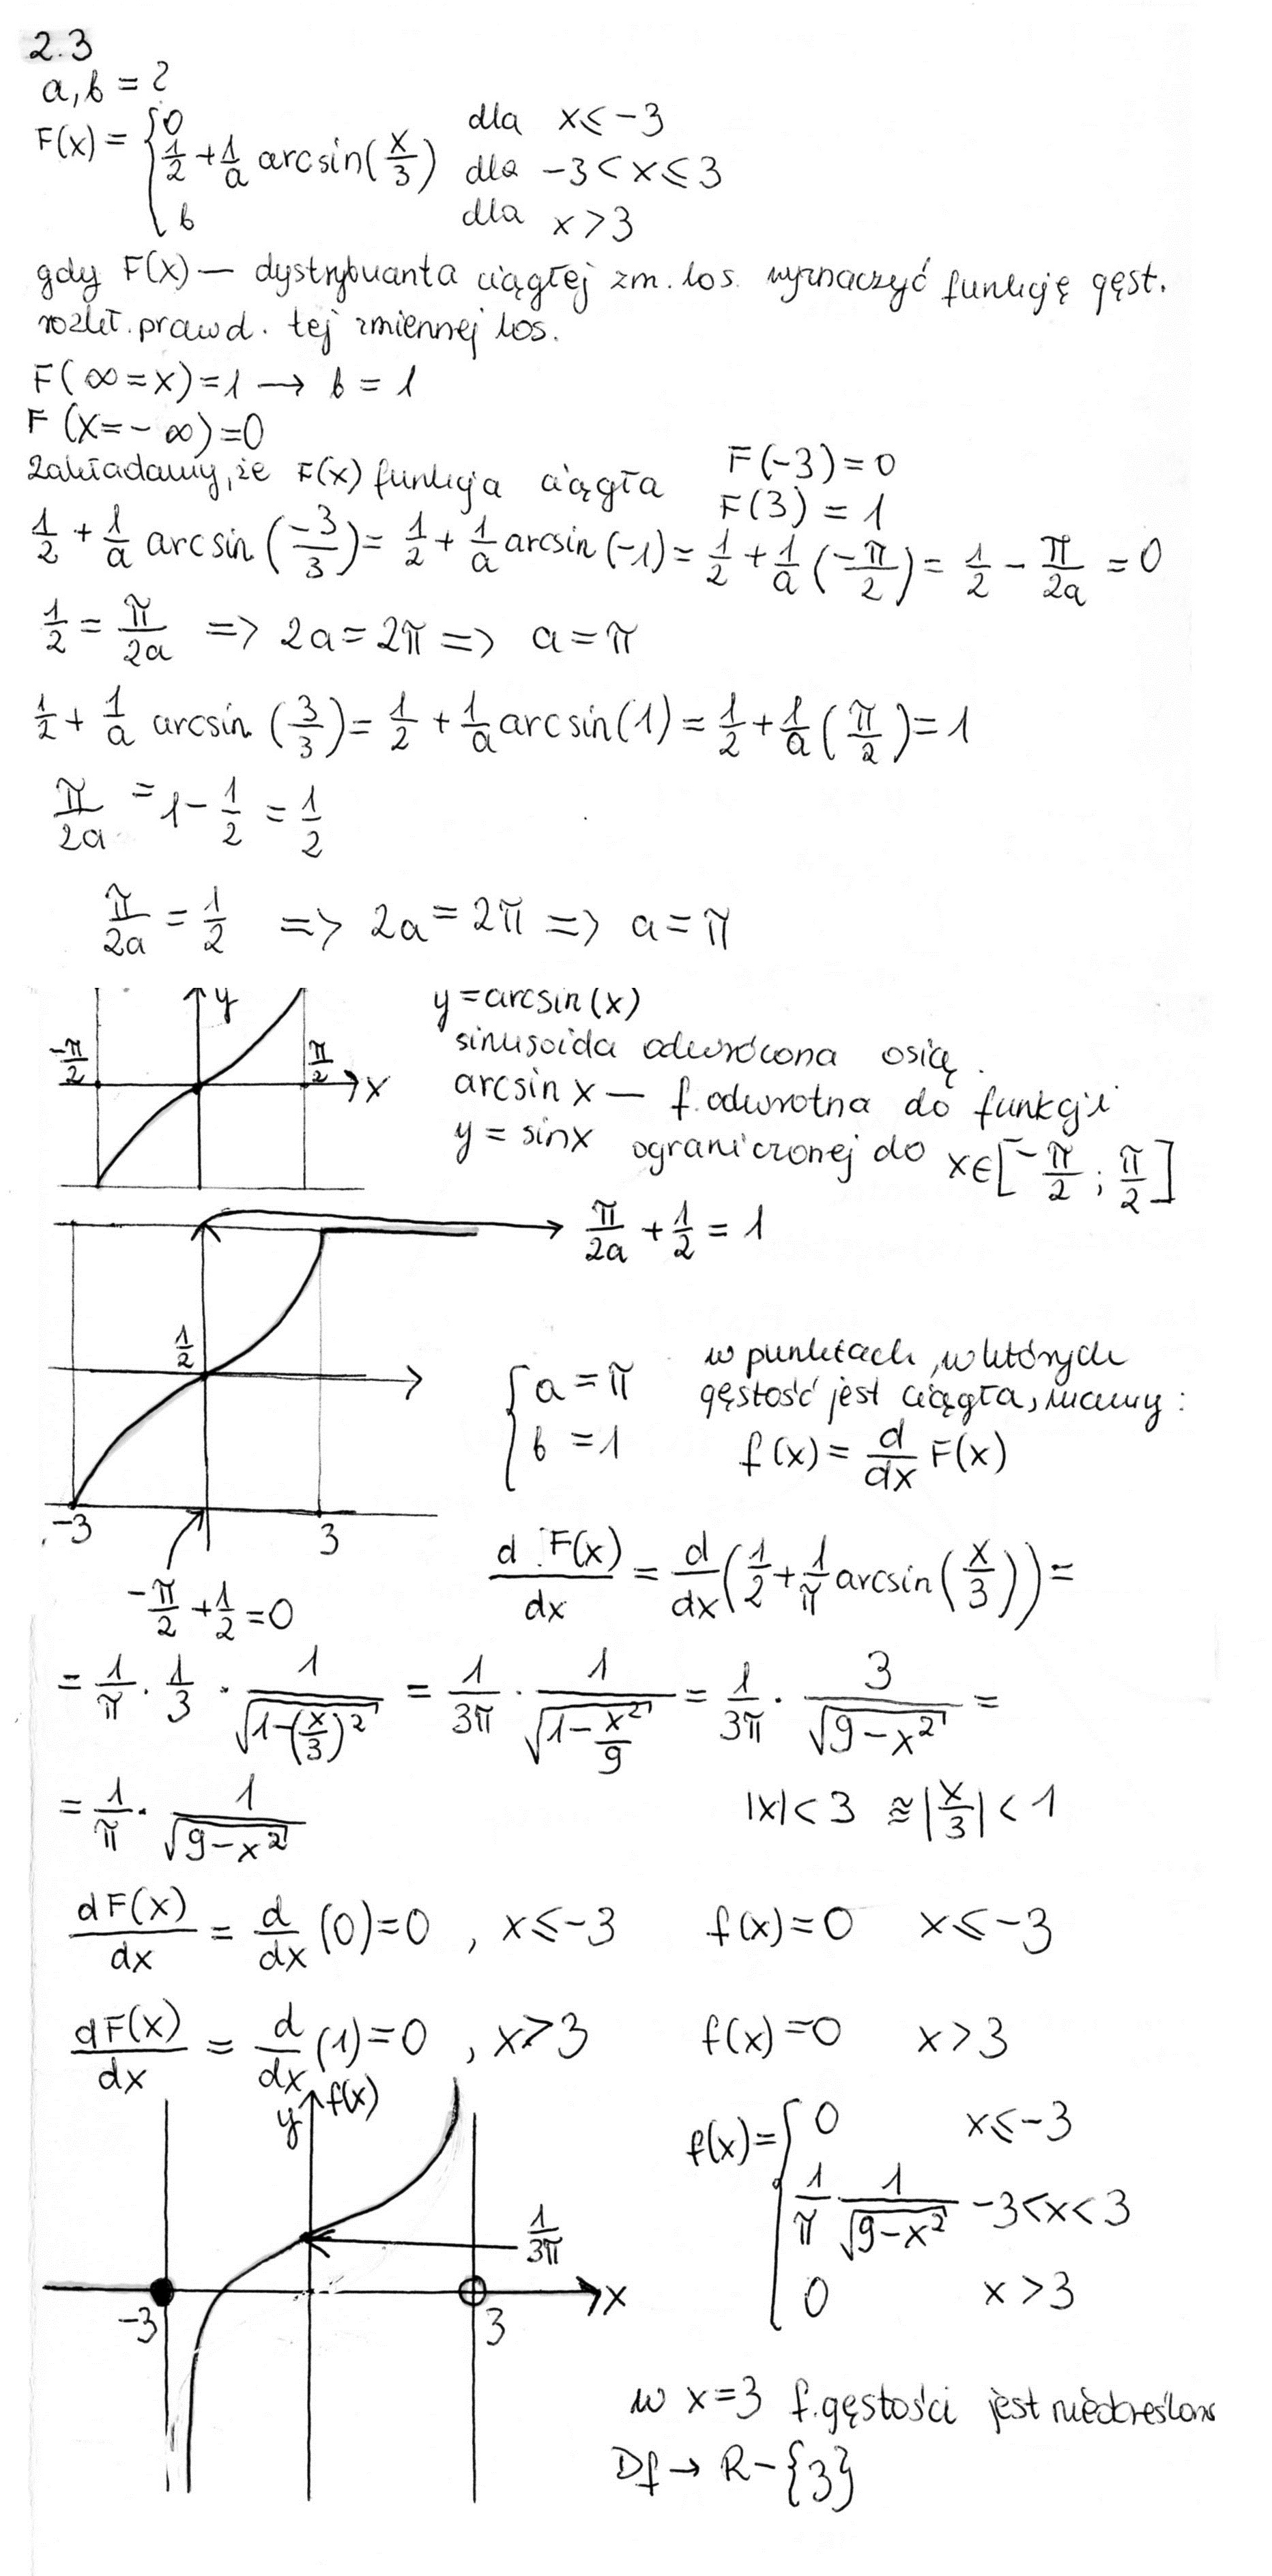 2.3
a, b = ?
F(x) = { 0 dla x ≤ -3
1/2 + 1/a arcsin(x/3) dla -3 < x ≤ 3
b dla x > 3
gdy F(x) — dystrybuanta ciągłej zm. los. wyznaczyć funkcję gęst.
rozkł. prawd. tej zmiennej los.
F(∞=x)=1 → b = 1
F(x=-∞)=0
Zakładamy, że F(x) funkcja ciągła F(-3)=0
F(3) = 1
1/2 + 1/a arcsin(-3/3) = 1/2 + 1/a arcsin(-1) = 1/2 + 1/a (-π/2) = 1/2 - π/2a = 0
1/2 = π/2a => 2a = 2π => a = π
1/2 + 1/a arcsin (3/3) = 1/2 + 1/a arcsin(1) = 1/2 + 1/a (π/2) = 1
π/2a = 1 - 1/2 = 1/2
π/2a = 1/2 => 2a = 2π => a = π
y
-π/2
π/2
x
y = arcsin(x)
sinusoida odwrócona osią.
arcsin x — f. odwrotna do funkcji
y = sinx ograniczonej do x∈[-π/2 ; π/2]
π/2a + 1/2 = 1
1/2
-3
3
-π/2 + 1/2 = 0
{ a = π
b = 1
w punktach, w których
gęstość jest ciągła, mamy:
f(x) = d/dx F(x)
d F(x)/dx = d/dx (1/2 + 1/π arcsin(x/3)) =
= 1/π · 1/3 · 1/√(1-(x/3)²) = 1/3π · 1/√(1-x²/9) = 1/3π · 3/√(9-x²) =
= 1/π · 1/√(9-x²) |x| < 3 ≈ |x/3| < 1
dF(x)/dx = d/dx (0) = 0 , x ≤ -3 f(x) = 0 x ≤ -3
dF(x)/dx = d/dx (1) = 0 , x > 3 f(x) = 0 x > 3
y f(x)
1/3π
-3
3
x
f(x) = { 0 x ≤ -3
1/π 1/√(9-x²) -3<x<3
0 x > 3
w x=3 f. gęstości jest nieokreślona
Df → R-{3}